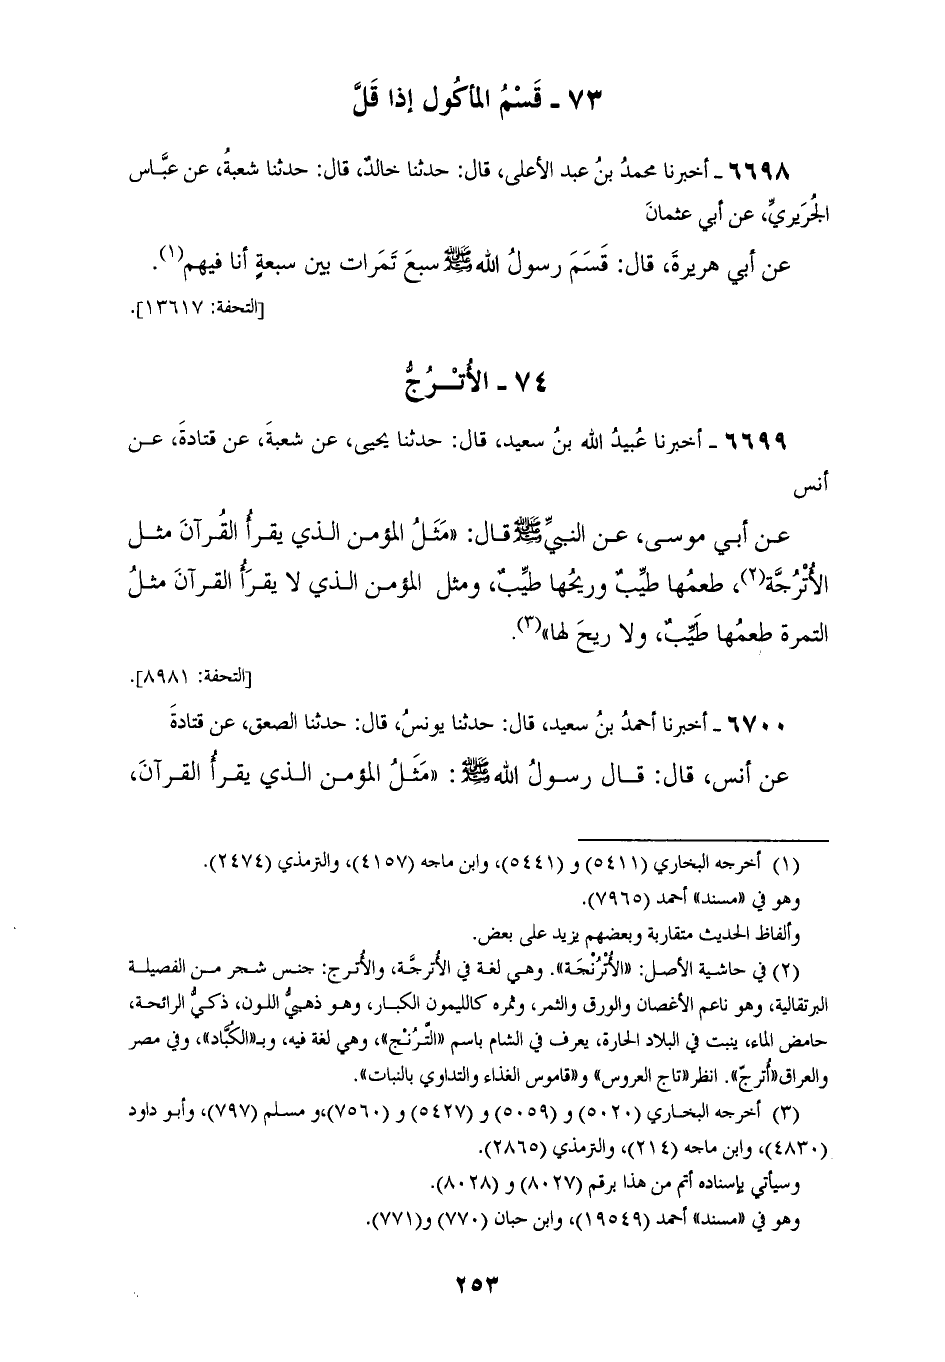 ٧٣ ـ قَسْمُ المأكُول إذا قَلَّ
٦٦٩٨ ـ أخبرنا محمدُ بنُ عبد الأعلى، قال: حدثنا خالدٌ، قال: حدثنا شعبةُ، عن عبَّاس
الجُرَيريِّ، عن أبي عثمانَ
عن أبي هريرةَ، قال: قَسَمَ رسولُ الله ﷺ سبعَ تَمَرات بين سبعةٍ أنا فيهم(١).
[التحفة: ١٣٦١٧].
٧٤ ـ الأُتْـرُجُّ
٦٦٩٩ ـ أخبرنا عُبيدُ الله بنُ سعيد، قال: حدثنا يحيى، عن شعبةَ، عن قتادةَ، عـن
أنس
عـن أبـي موسـى، عـن النبيِّ ﷺ قال: «مَثَـلُ المؤمـن الـذي يقـرأُ القُـرآنَ مثـل
الأُتْرُجَّة(٢)، طعمُها طيِّبٌ وريحُها طيِّبٌ، ومثل المؤمن الـذي لا يقـرَأُ القرآنَ مثـلُ
التمرة طعمُها طَيِّبٌ، ولا ريحَ لها»(٣).
[التحفة: ٨٩٨١].
٦٧٠٠ ـ أخبرنا أحمدُ بنُ سعيد، قال: حدثنا يونسُ، قال: حدثنا الصعق، عن قتادةَ
عن أنس، قال: قـال رسـولُ الله ﷺ: «مَثَـلُ المؤمـن الـذي يقـرأُ القـرآنَ،
(١) أخرجه البخاري (٥٤١١) و (٥٤٤١)، وابن ماجه (٤١٥٧)، والترمذي (٢٤٧٤).
وهو في «مسند» أحمد (٧٩٦٥).
وألفاظ الحديث متقاربة وبعضهم يزيد على بعض.
(٢) في حاشية الأصل: «الأُتْرُنْجَة». وهـي لغة في الأُترجَّة، والأُتـرج: جنس شجـر مـن الفصيلـة
البرتقالية، وهو ناعم الأغصان والورق والثمر، وثمره كالليمون الكبـار، وهـو ذهبيُّ اللـون، ذكـيُّ الرائحة،
حامض الماء، ينبت في البلاد الحارة، يعرف في الشام باسم «التُّرُنْج»، وهي لغة فيه، وبـ«الكُبَّاد»، وفي مصر
والعراق«أُترجّ». انظر«تاج العروس» و«قاموس الغذاء والتداوي بالنبات».
(٣) أخرجه البخـاري (٥٠٢٠) و (٥٠٥٩) و (٥٤٢٧) و (٧٥٦٠)،و مسلم (٧٩٧)، وأبـو داود
(٤٨٣٠)، وابن ماجه (٢١٤)، والترمذي (٢٨٦٥).
وسيأتي بإسناده أتم من هذا برقم (٨٠٢٧) و (٨٠٢٨).
وهو في «مسند» أحمد (١٩٥٤٩)، وابن حبان (٧٧٠) و(٧٧١).
٢٥٣